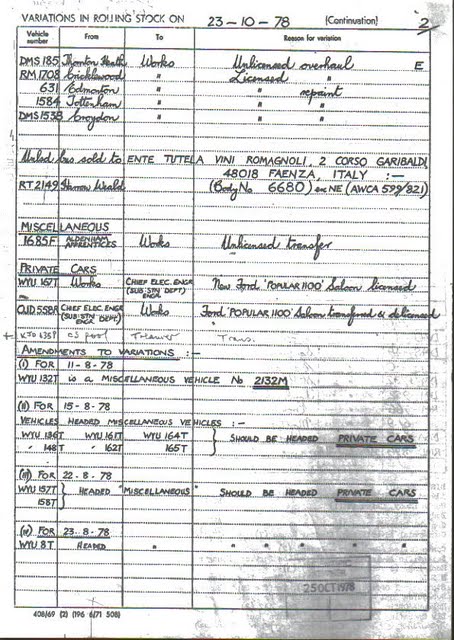 VARIATIONS IN ROLLING STOCK ON 23-10-78 (Continuation) 2
Vehicle number From To Reason for variation
DMS 185 Thornton Heath Works Unlicensed overhaul E
RM 1708 Cricklewood " Licensed "
631 Edmonton " " repaint
1584 Tottenham " " "
DMS 1538 Croydon " " "
Unlsd bus sold to ENTE TUTELA VINI ROMAGNOLI, 2 CORSO GARIBALDI
48018 FAENZA, ITALY :-
RT 2149 Harrow Weald (Body No 6680) ex NE (AWCA 599/821)
MISCELLANEOUS
1685F ALDENHAM APPRENTICES Works Unlicensed transfer
PRIVATE CARS
WYU 167T Works CHIEF ELEC. ENGR (SUB STN DEPT) New Ford 'POPULAR 1100' Saloon licensed
OJD 558R CHIEF ELEC. ENGR (SUB STN DEPT) Works Ford 'POPULAR 1100' Saloon transferred & delicensed
CS pool Trans.
AMENDMENTS TO VARIATIONS :-
(I) FOR 11-8-78
WYU 132T is a MISCELLANEOUS VEHICLE No 2132M
(II) FOR 15-8-78
VEHICLES HEADED MISCELLANEOUS VEHICLES :-
WYU 136T WYU 161T WYU 164T } SHOULD BE HEADED PRIVATE CARS
" 148T " 162T 165T
(III) FOR 22-8-78
WYU 157T } HEADED "MISCELLANEOUS" SHOULD BE HEADED PRIVATE CARS
158T
(IV) FOR 23-8-78
WYU 8T HEADED " " " " " "
25 OCT 1978
408/69 (2) (196 6/71 50B)